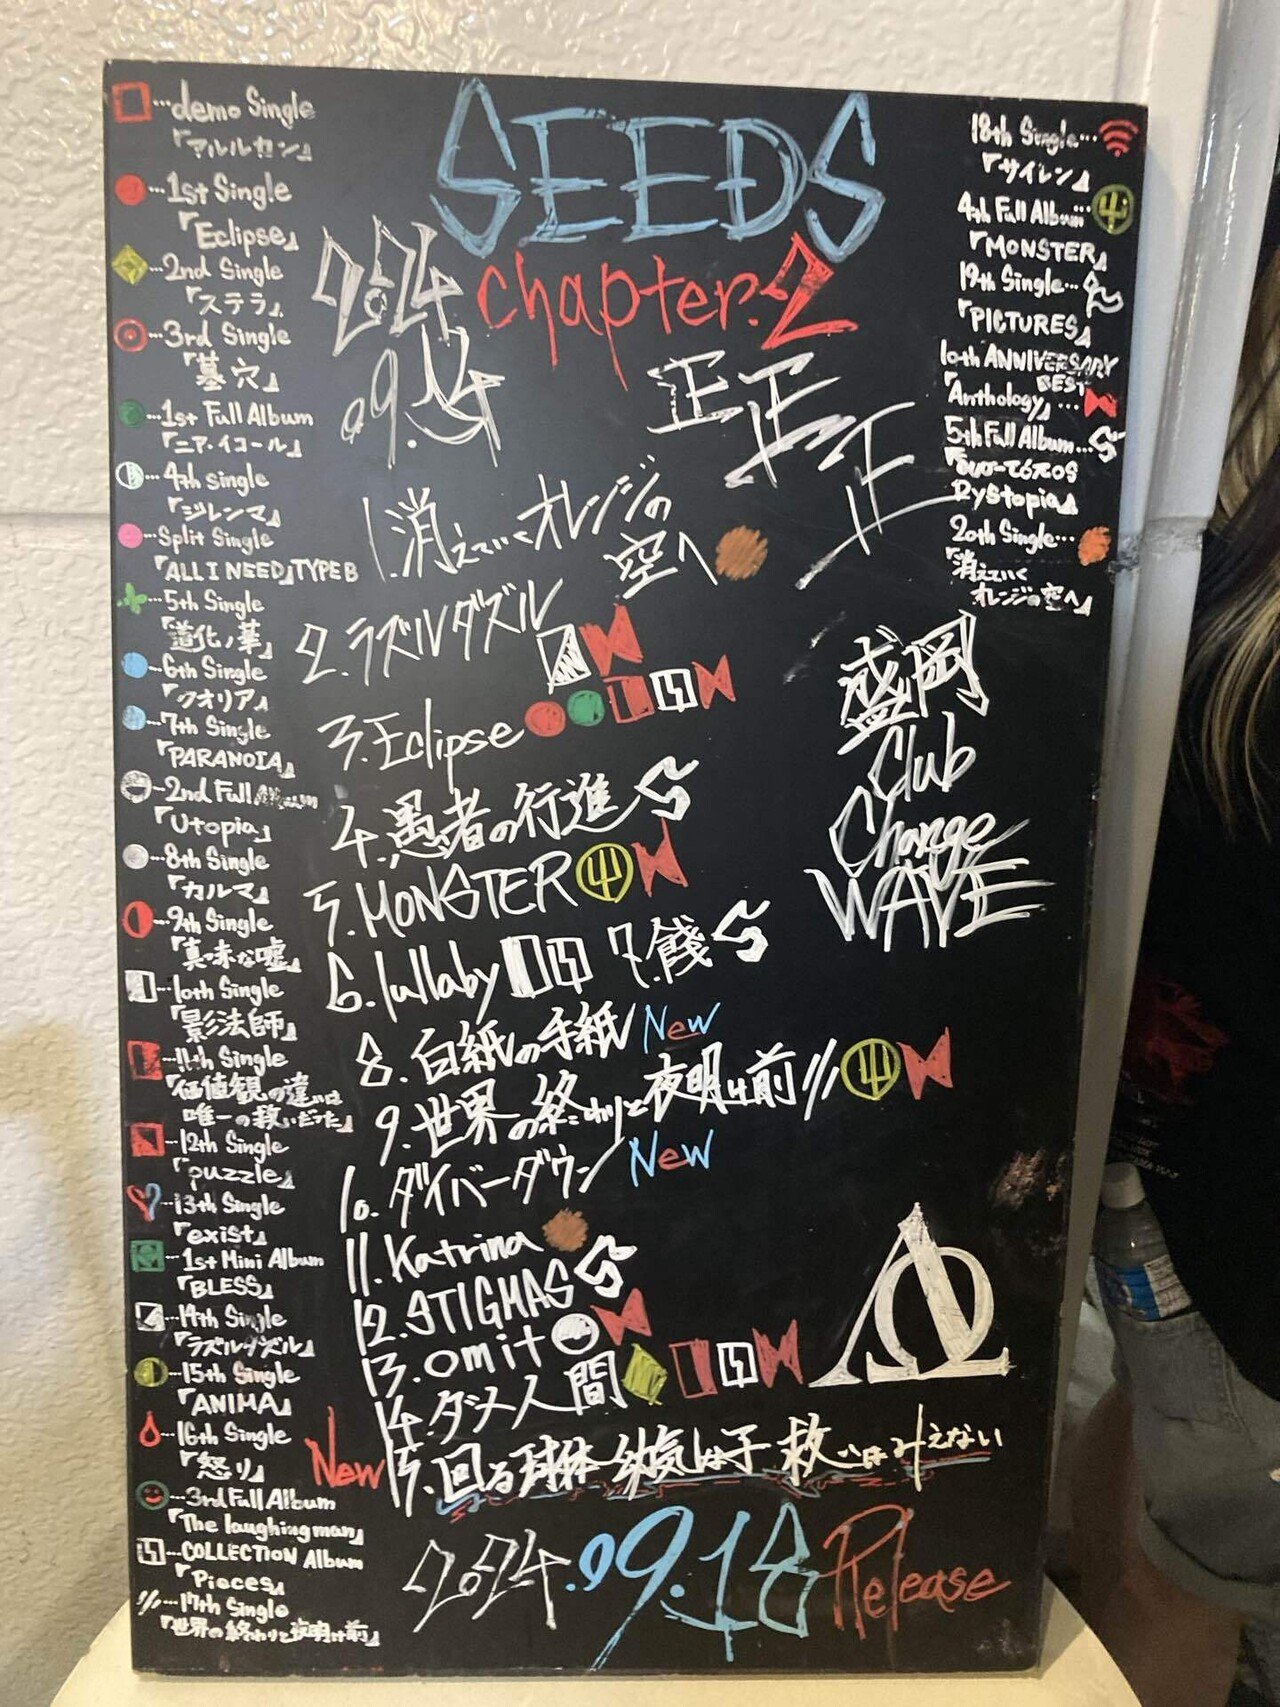 SEEDS
chapter.2
2024
.09.14
正正正
demo Single
『アルルカン』
1st Single
『Eclipse』
2nd Single
『ステラ』
3rd Single
『墓穴』
1st Full Album
『ニア・イコール』
4th single
『ジレンマ』
Split Single
『ALL I NEED』TYPE B
5th Single
『道化ノ華』
6th Single
『クオリア』
7th Single
『PARANOIA』
2nd Full Album
『Utopia』
8th Single
『カルマ』
9th Single
『真っ赤な嘘』
10th Single
『影法師』
11th Single
『価値観の違いは
唯一の救いだった』
12th Single
『puzzle』
13th Single
『exist』
1st Mini Album
『BLESS』
14th Single
『ラズルダズル』
15th Single
『ANIMA』
16th Single
『怒り』
3rd Full Album
『The laughing man』
COLLECTION Album
『Pieces』
17th Single
『世界の終わりと夜明け前』
1.消えていくオレンジの
空へ
2.ラズルダズル
3.Eclipse
4.愚者の行進
5.MONSTER
6.lullaby 7.餞
8.白紙の手紙 New
9.世界の終わりと夜明け前
10.ダイバーダウン New
11.Katrina
12.STIGMAS
13.omit
14.ダメ人間
New 15.回る球体 幼気な子 救いはみえない
2024.09.18 Release
18th Single…
『サイレン』
4th Full Album…
『MONSTER』
19th Single…
『PICTURES』
10th ANNIVERSARY
BEST
『Anthology』…
5th Full Album…
Dystopia』
20th Single…
『消えていく
オレンジの空へ』
盛岡
Club
Change
WAVE